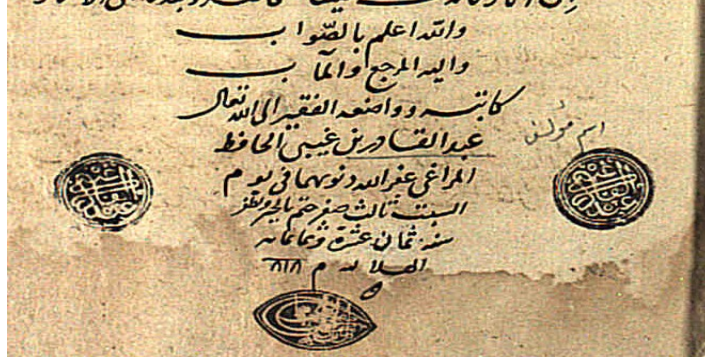 والله اعلم بالصواب
واليه المرجع والمآب
كاتبه وواضعه الفقير الى الله تعالى
عبد القادر بن غيبي الحافظ
اسم مؤلف
المراغي عفر الله ذنوبهما في يوم
السبت ثالث صفر ختم بالخير والظفر
سنه ثمان عشرة وثمانمائه
الهلاليه م ٨١٨